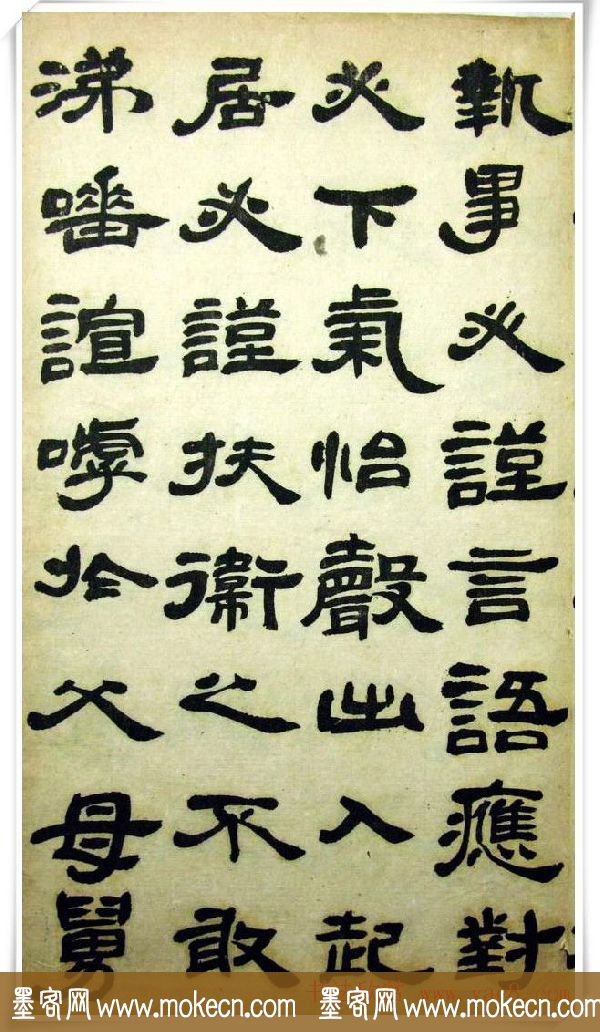 執事必謹言語應對
必下氣怡聲出入起
居必謹扶衛之不敢
涕唾諠嘑於父母舅
墨客网 www.mokecn.com 墨客网 www.mokecn.com